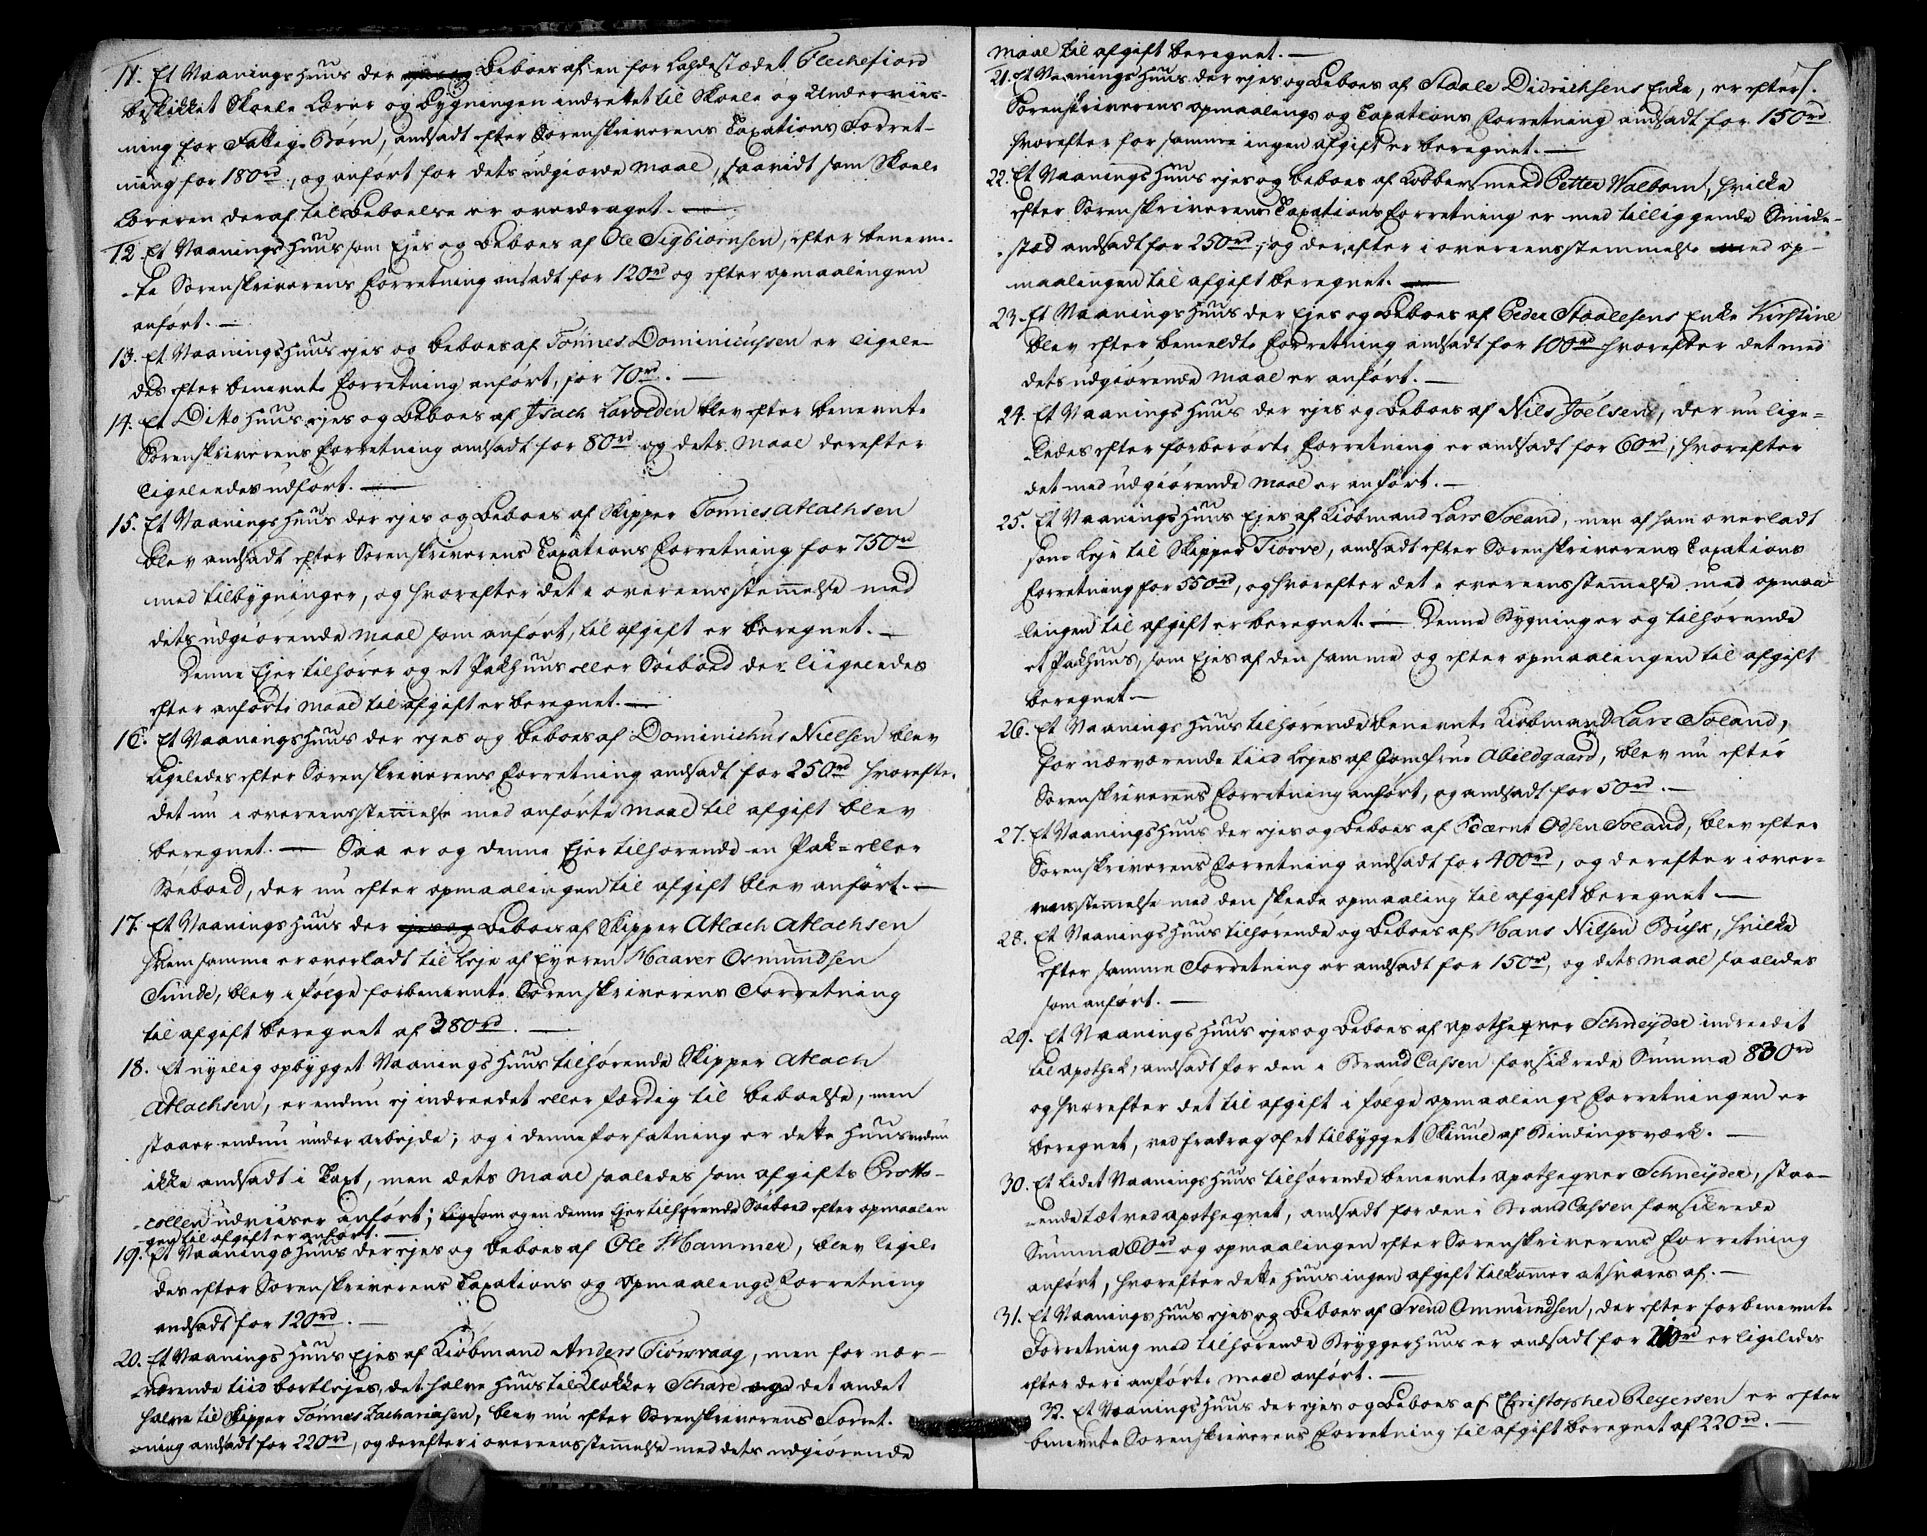 11. Et Vaanings Huus der ejes og beboes af en for Ladestædet Flechefiord
beskikket Skole Lærer og Bygningen indrettet til Skole og Underviis-
ning for Fattige Børn, andsadt efter Sorenskriverens Taxations Forret-
ning for 180rd, og anført for dets udgiorde Maal, saavidt som Skole
Læreren deraf til Beboelse er overdraget. —
12. Et Vaanings Huus som Ejes og Beboes af Ole Sigbiørnsen, efter benevn-
te Sorenskriverens Forretning ansadt for 120rd og efter opmaalingen
anført. —
13. Et Vaanings Huus ejes og beboes af Tønnes Dominicussen er ligele-
des efter benevnte Forretning anført, for 70rd. —
14. Et Ditto Huus ejes og Beboes af Isach Lavolden blev efter benevnte
Sorenskriverens Forretning andsadt for 80rd og dets Maal derefter
ligeledes udført. —
15. Et Vaanings Huus der ejes og Beboes af Skipper Tønnes Atlachsen
blev andsadt efter Sorenskriverens Taxations Forretning for 750rd
med tilbygninger, og hvorefter det i overeensstemmelse med
dets udgiørende Maal som anført, til afgift er beregnet. —
Denne Ejer tilhører og et Pakhuus eller Søeboed der liigeledes
efter anførte Maal til afgift er beregnet. —
16. Et Vaanings Huus der ejes og beboes af Dominichus Nielsen blev
ligeledes efter Sorenskriverens Forretning andsadt for 250rd hvorefter
det nu i overeensstemmelse med anførte Maal til afgift blev
beregnet. — Saa er og denne Ejer tilhørende en Pak- eller
Søeboed, der nu efter opmaalingen til afgift blev anført. —
17. Et Vaanings Huus der ejes og Beboes af Skipper Atlach Atlachsen
hvem samme er overladt til Leje af Eyeren Haaver Osmundsen
Sunde, blev i følge forbenevnte Sorenskriverens Forretning
til afgift beregnet af 380rd. —
18. Et nyelig opbygget Vaanings Huus tilhørende Skipper Atlach
Atlachsen, er endnu ej indreedet eller færdig til beboelse, men
staaer endnu under arbejde; og i denne forfatning er dette Huus endnu
ikke andsadt i Taxt, men dets Maal saaledes som afgifts Protto-
collen udviiser anført; ligesom og en denne Ejer tilhørende Søeboed efter opmaalin
gen til afgift er anført. —
19. Et Vaanings Huus der ejes og beboes af Ole Hammer, blev ligele
des efter Sorenskriverens Taxations og Opmaalings Forretning
andsadt for 120rd. —
20. Et Vaanings Huus Ejes af Kiøbmand Anders Tiørsvaag, men for nær-
værende tiid bortlejes, det halve Huus til Klokker Schare og det andet
halve til Skipper Tønnes Zachariasen, blev nu efter Sorenskriverens Forret-
ning andsadt for 220rd, og derefter i overeensstemmelse med dets udgiørende
Maal til afgift beregnet. —
7.
21. Et Vaanings Huus der ejes og Beboes af Staale Didrichsens Enke, er efter
Sorenskriverens opmaalings og Taxations Forretning andsadt for 150rd
hvorefter for samme ingen afgift er beregnet. —
22. Et Vaanings Huus ejes og beboes af Kobbersmed Petter Walbom, hvilke
efter Sorenskriverens Taxations Forretning er med tilliggende Smide-
sted andsadt for 250rd, og derefter i overeensstemmelse med op-
maalingen til afgift beregnet. —
23. Et Vaanings Huus der Ejes og Beboes af Peder Staalesens Enke Kirstine
blev efter bemeldte Forretning andsadt for 100rd hvorefter det med
dets udgiørende Maal er anført. —
24. Et Vaanings Huus der ejes og Beboes af Nils Joelsen, der nu lige-
ledes efter forberørte Forretning er andsadt for 60rd, hvorefter
det med udgiørende Maal er anført. —
25. Et Vaanings Huus Ejes af Kiøbmand Lars Soland, men af ham overladt
som Leje til Skipper Tiørve, andsadt efter Sorenskriverens Taxations
Forretning for 550rd, og hvorefter det i overeensstemmelse med opmaa-
lingen til afgift er beregnet. — Denne Bygning er og tilhørende
et Pakhuus, som Ejes af den samme og efter opmaalingen til afgift
beregnet. —
26. Et Vaanings Huus tilhørende benevnte Kiøbmand Lars Soland,
for nærværende tiid Lejes af Jomfrue Abildgaard, blev nu efter
Sorenskriverens Forretning anført, og andsadt for 50rd. —
27. Et Vaanings Huus der ejes og Beboes af Bærnt Odsen Soland, blev efter
Sorenskriverens Forretning andsadt for 400rd, og derefter i over-
eensstemmelse med den skeede opmaaling til afgift beregnet —
28. Et Vaanings Huus tilhørende og Beboes af Hans Nilsen Buch, hvilke
efter samme Forretning er andsadt for 150rd, og dets Maal saaledes
som anført. —
29. Et Vaanings Huus ejes og Beboes af Apotheqver Schneyder indreedet
til Apothek, andsadt for den i Brand Cassen forsikrede Summa 830rd
og hvorefter det til afgift i følge opmaalings Forretningen er
beregnet, ved fradrag af et tilbygget Skuur af Bindingsværk. —
30. Et Ledet Vaanings Huus tilhørende benevnte Apotheqver Schneyder, staa-
ende tæt ved Apotheqvet, andsadt for den i Brand Cassen forsikrede
Summa 60rd og opmaalingen efter Sorenskriverens Forretning
anført, hvorefter dette Huus ingen afgift tilkommer at svares af. —
31. Et Vaanings Huus ejes og Beboes af Svend Ommundsen, der efter forbenevnte
Forretning med tilhørende Bryggerhuus er andsadt for 210rd er ligeledes
efter deri anførte Maal anført. —
32. Et Vaanings Huus der ejes og Beboes af Christopher Reyersen er efter
benevnte Sorenskriverens Forretning til afgift beregnet af 220rd. —